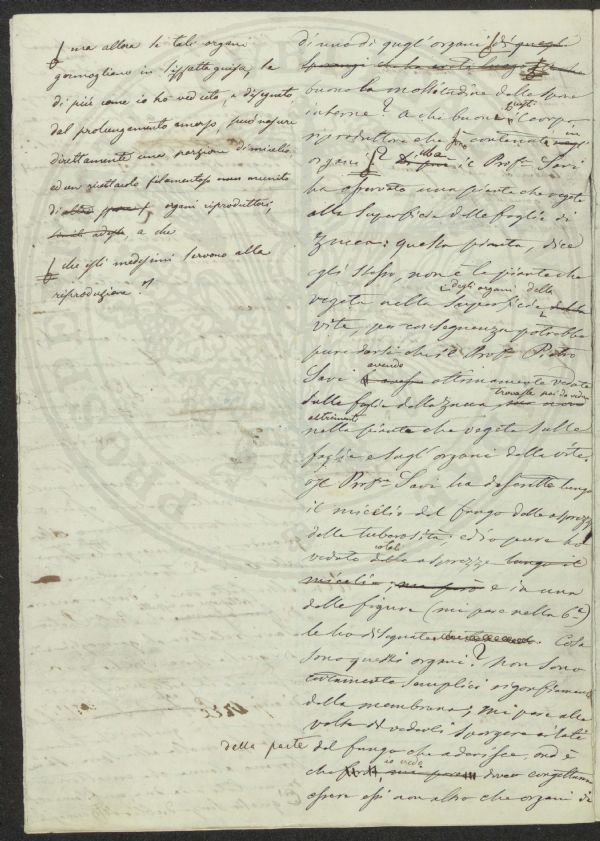 ma allora se tali organi
germogliano in siffatta guisa, la
di più come io ho veduto, e disegnato
dal prolungamento emerso, può nascere
direttamente una porzione di micelio
ed un ricettacolo filamentoso non munito
di organi riproduttori,
a che
che essi medesimi servono alla
riproduzione?
di uno di quegli organi di quegli
buono la moltitudine delle spore
interne? A che buone questi corpi
riproduttori che sono contenute in
organi? il Prof. Savi
ha osservato una pianta che vegeta
alla superficie delle foglie di
Zucca: questa pianta, dice
egli stesso, non è la pianta che
vegeta nella superficie degli organi della
vite, per conseguenza potrebbe
pure darsi che il Prof. Pietro
Savi avendo ottimamente veduto
sulle foglie della Zucca trovasse poi da vedere
altrimenti
nella pianta che vegeta sulle
foglie e sugl' organi della vite.
Il Prof. Savi ha descritte lungo
il micelio del fungo delle asprezze
delle tuberosità: ed io pure ho
veduto cotali asprezze lungo il
micelio; ma però e in una
delle figure (mi pare nella 6.a)
le ho disegnate. Cosa
sono questi organi? Non sono
certamente semplici rigonfiamenti
della membrana; mi pare alle
volte di vederli sporgere ai lati
della parte del fungo che aderisce, ond'è
che io vado congetturando
essere essi non altro che organi di